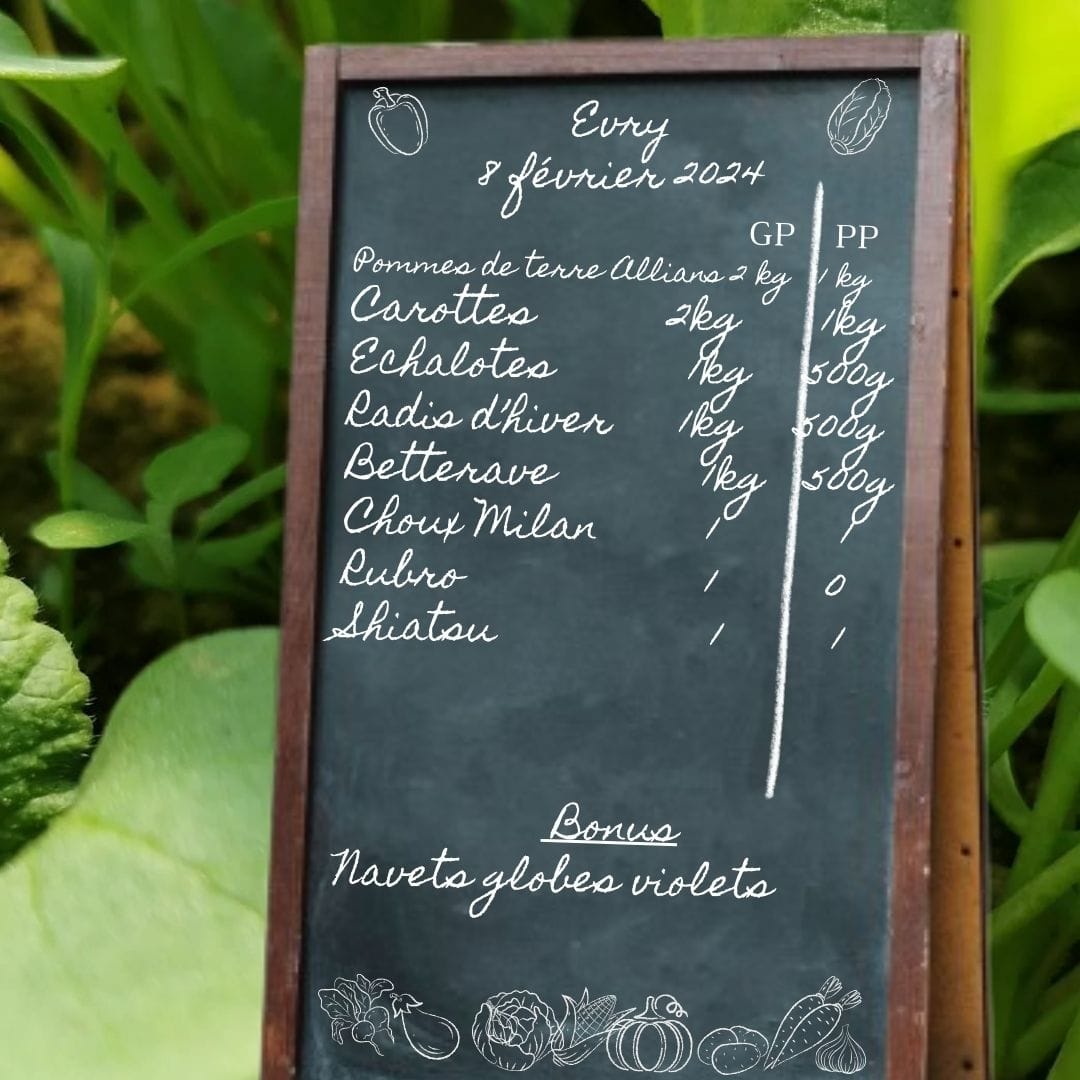 Evry
8 février 2024
GP PP
Pommes de terre Allians 2 kg 1 kg
Carottes 2kg 1kg
Echalotes 1kg 500g
Radis d'hiver 1kg 500g
Betterave 1kg 500g
Choux Milan 1 1
Rubro 1 0
Shiatsu 1 1
Bonus
Navets globes violets